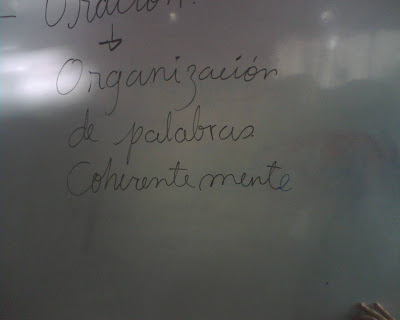 - Oración:
Organización
de palabras
Coherentemente